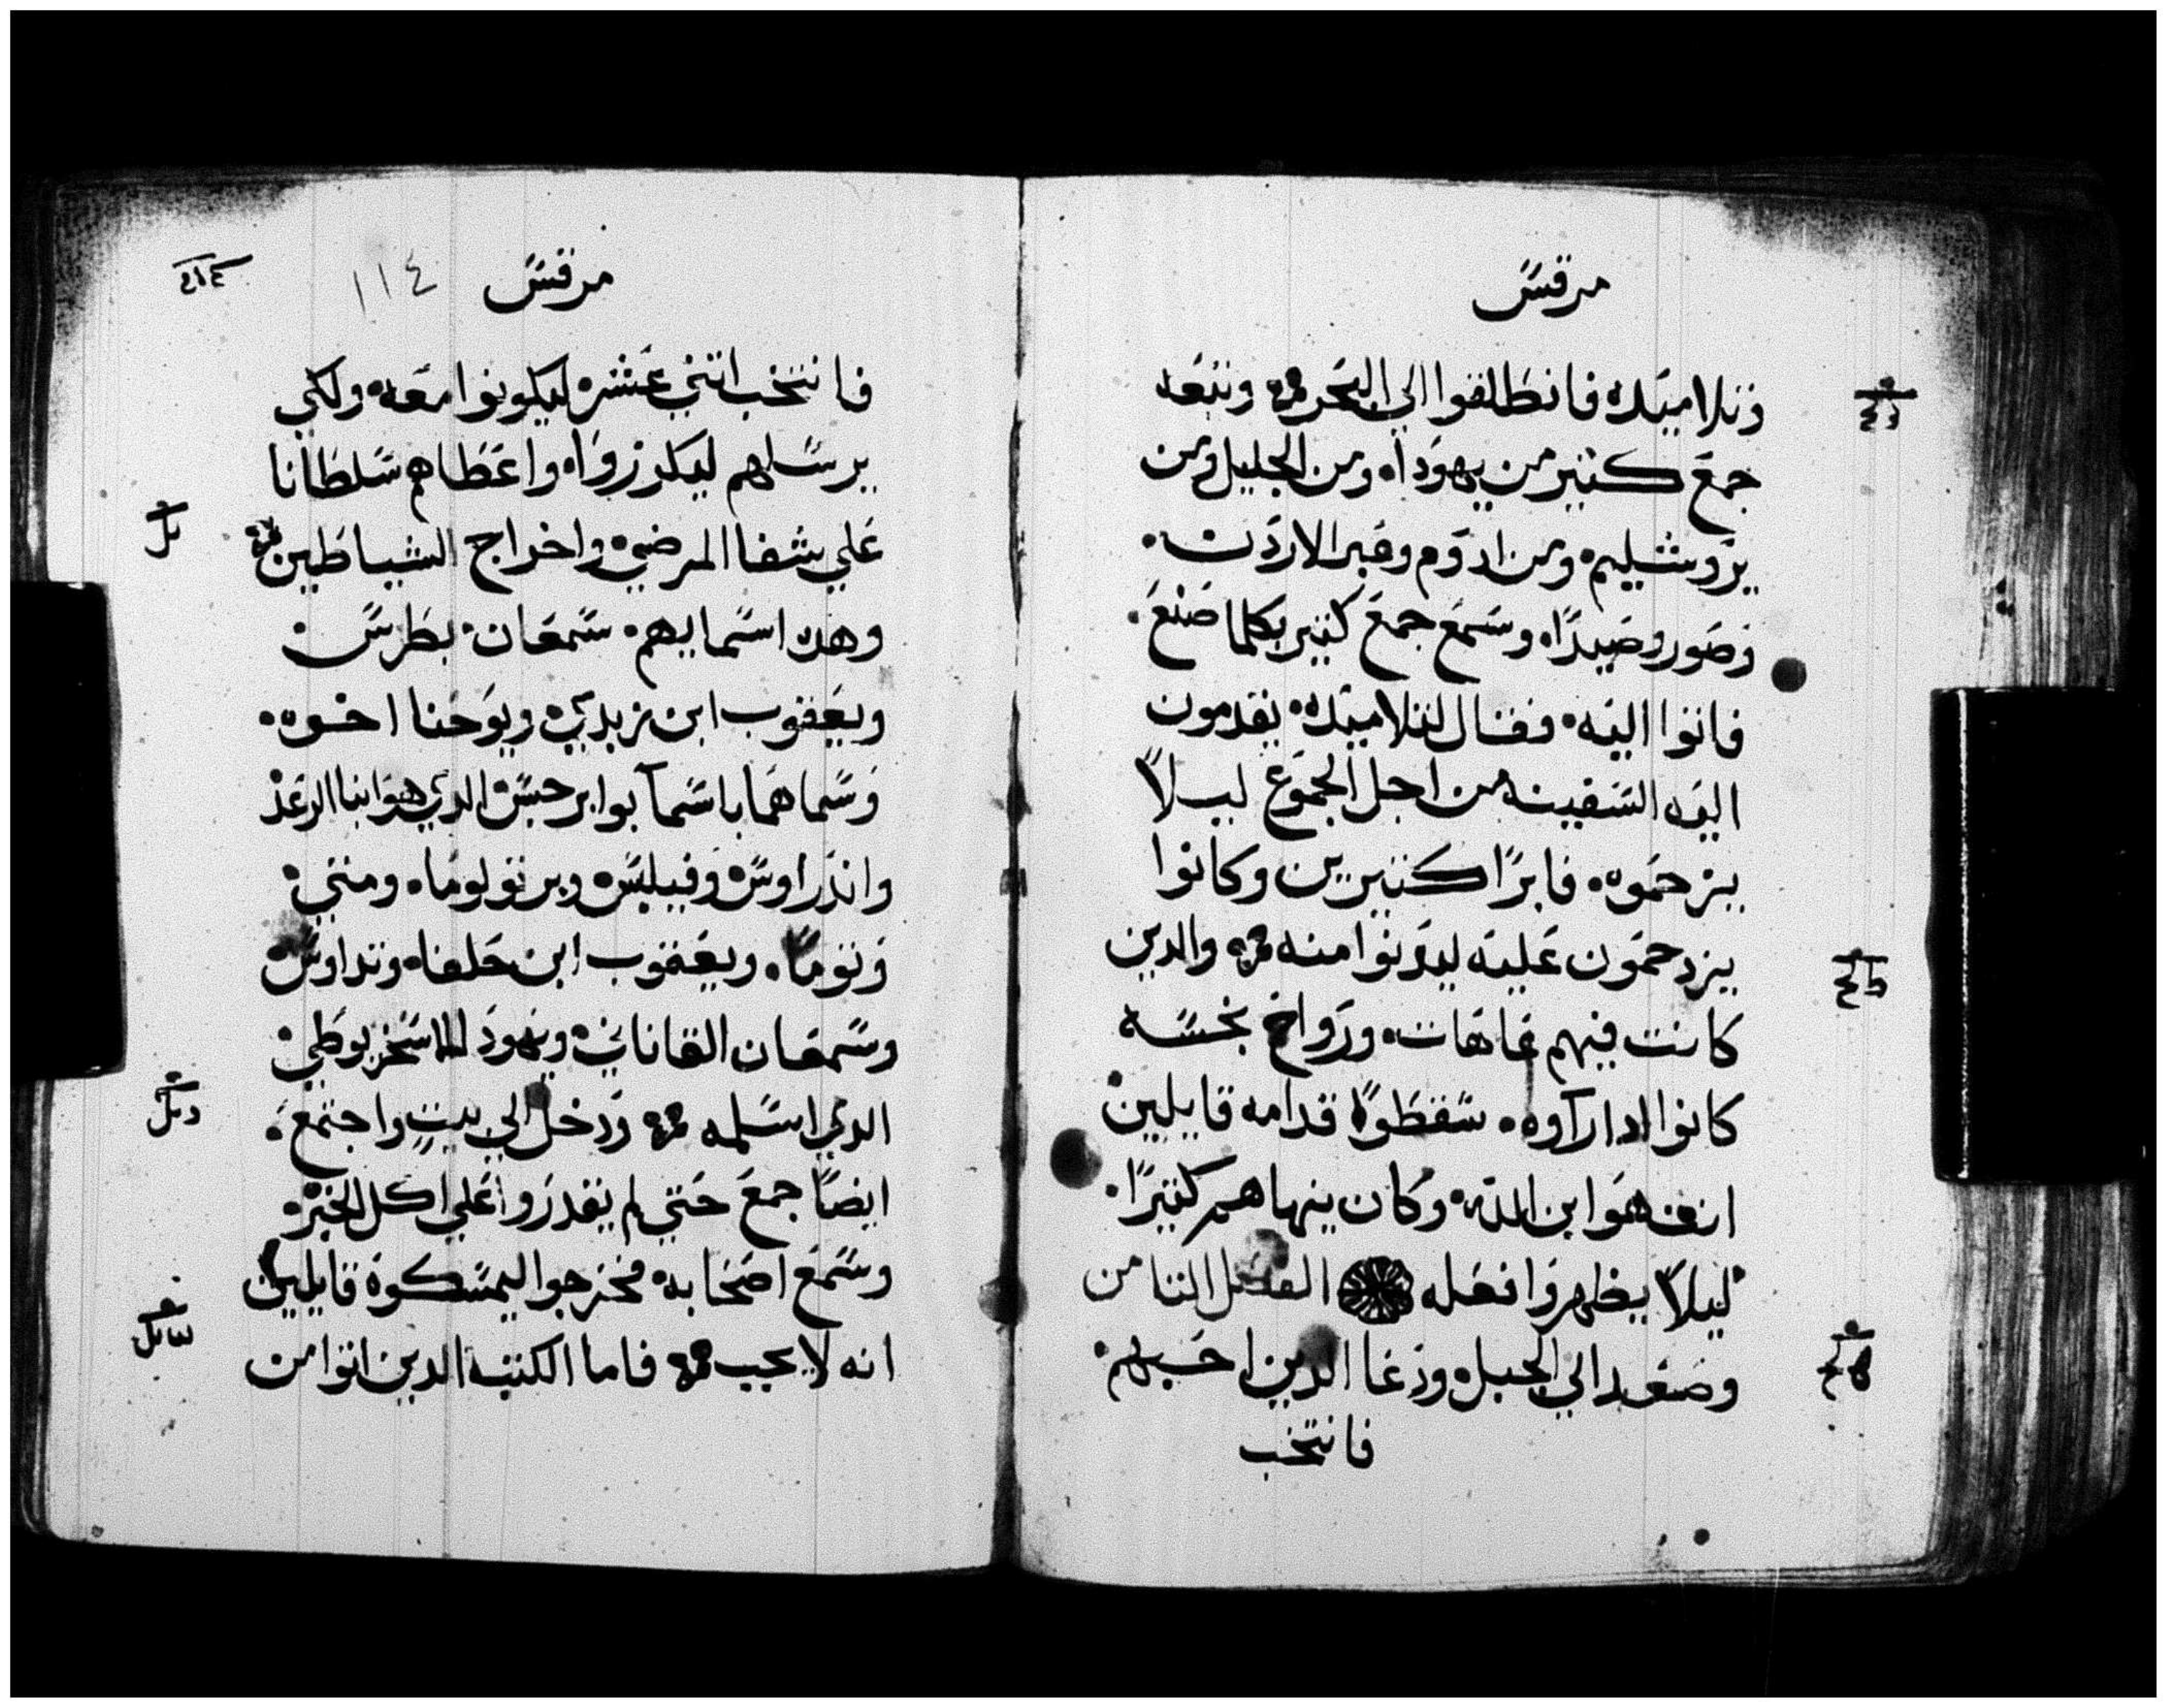 مرقس
وتلاميده فانطلقوا الي البحر وتبعه
جمع كتير من يهودا ومن الجليل ومن
يروشليم ومن ادوم وعبر الاردن
وصور وصيدا وسمع جمع كتير بكلما صنع
فاتوا اليه فقال لتلاميده يقدمون
اليه السفينه من اجل الجموع ليلا
يزحموه فابرا كتيرين وكانوا
يزدحمون عليه ليدنوا منه والدين
كانت فيهم عاهات وارواح نجسه
كانوا ادا راوه سقطوا قدامه قايلين
انت هو ابن الله وكان ينهاهم كتيرا
ليلا يظهروا فعله الفصل التامن
وصعد الي الجبل ودعا الدين احبهم
فانتخب
مرقس
١١٤
فانتخب اتني عشر ليكونوا معه ولكي
يرسلهم ليكرزوا واعطاهم سلطانا
علي شفا المرضي واخراج الشياطين
وهده اسمايهم سمعان بطرس
ويعقوب ابن زبدي ويوحنا اخوه
وسماهما باسما بوانرجس الدي هو ابنا الرعد
واندراوس وفيلبس وبرتولوما ومتي
وتوما ويعقوب ابن حلفا وتداوس
وسمعان القاناني ويهودا الاسخريوطي
الدي اسلمه ودخل الي بيت واجتمع
ايضا جمع حتي لم يقدروا علي اكل الخبز
وسمع اصحابه فخرجوا ليمسكوه قايلين
انه لا يجيب فاما الكتبه الدين اتوا من